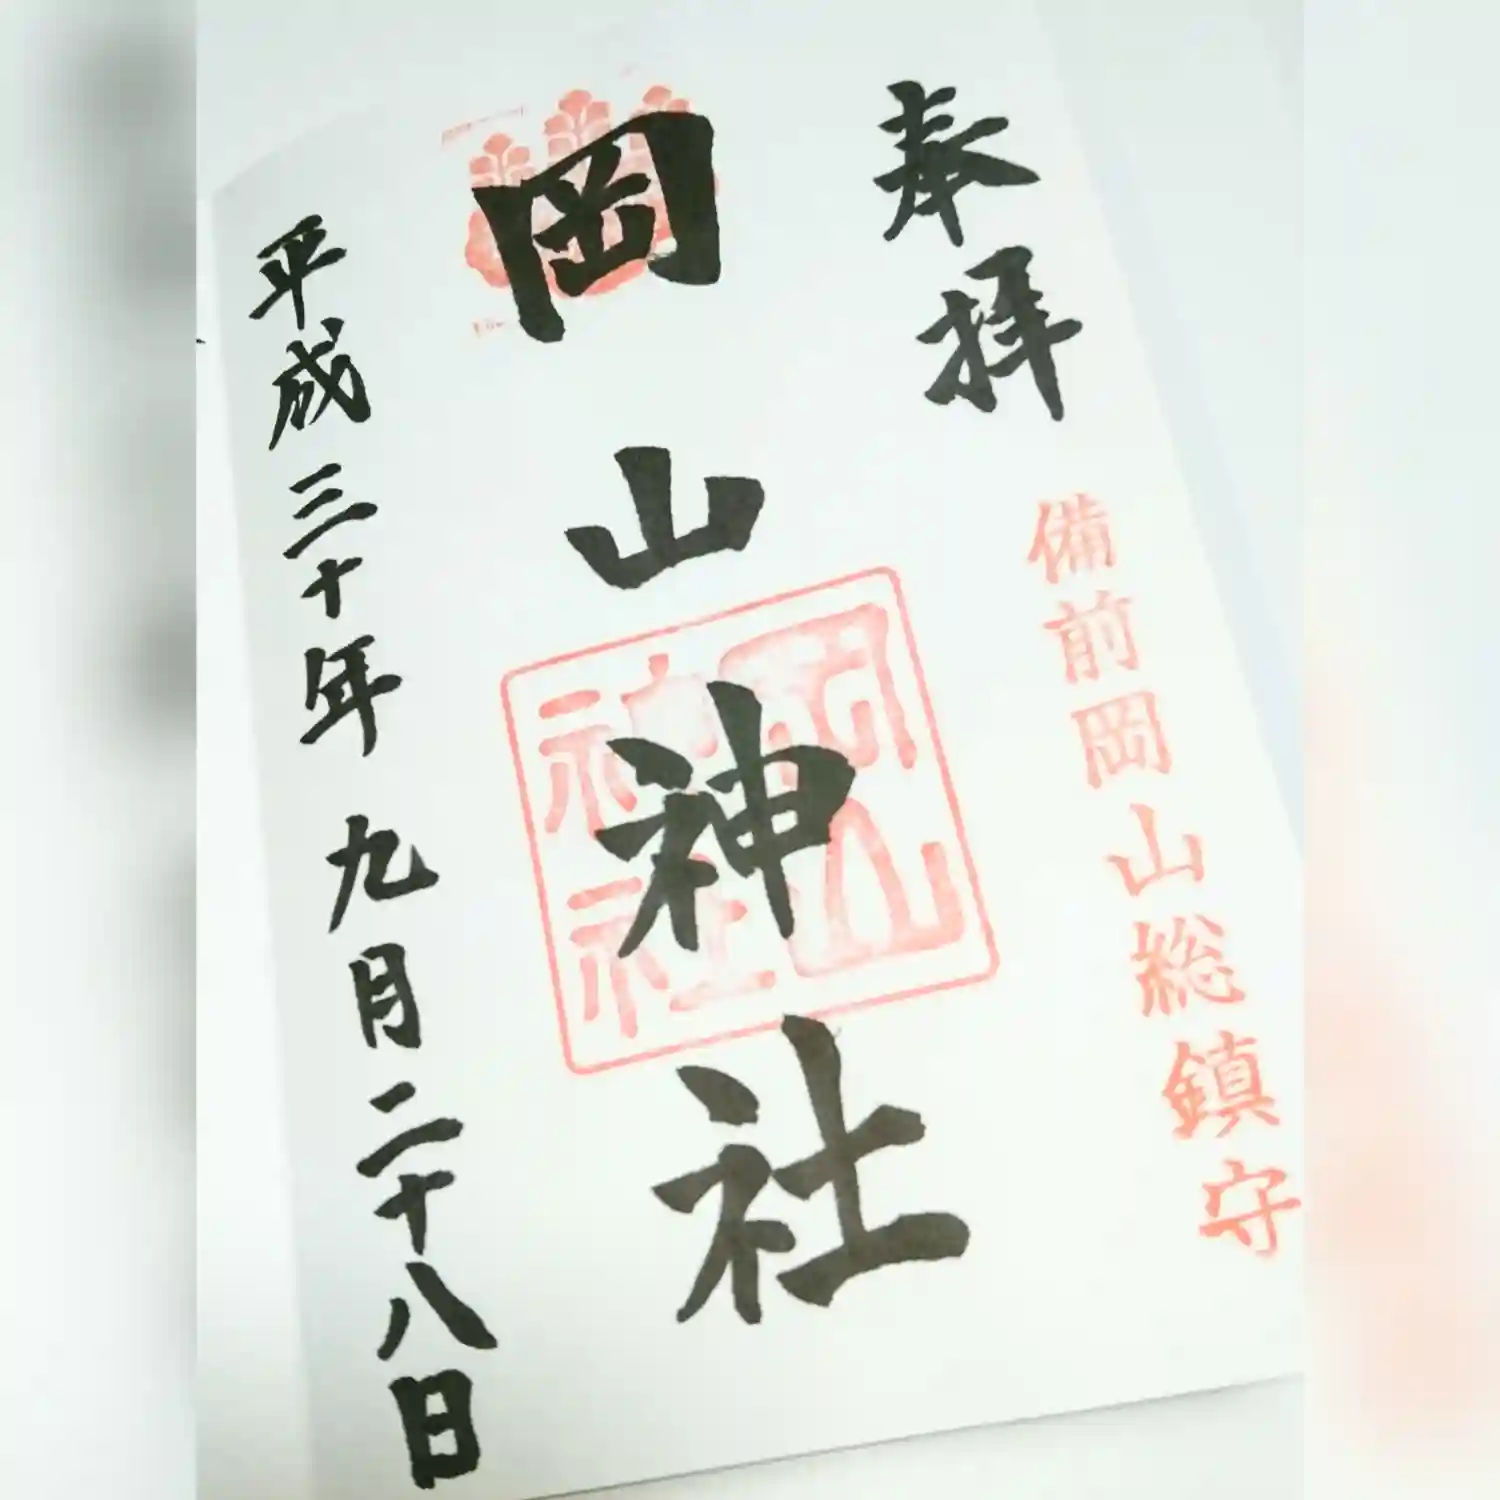 奉拝
備前岡山総鎮守
岡山神社
岡山神社
平成三十年九月二十八日